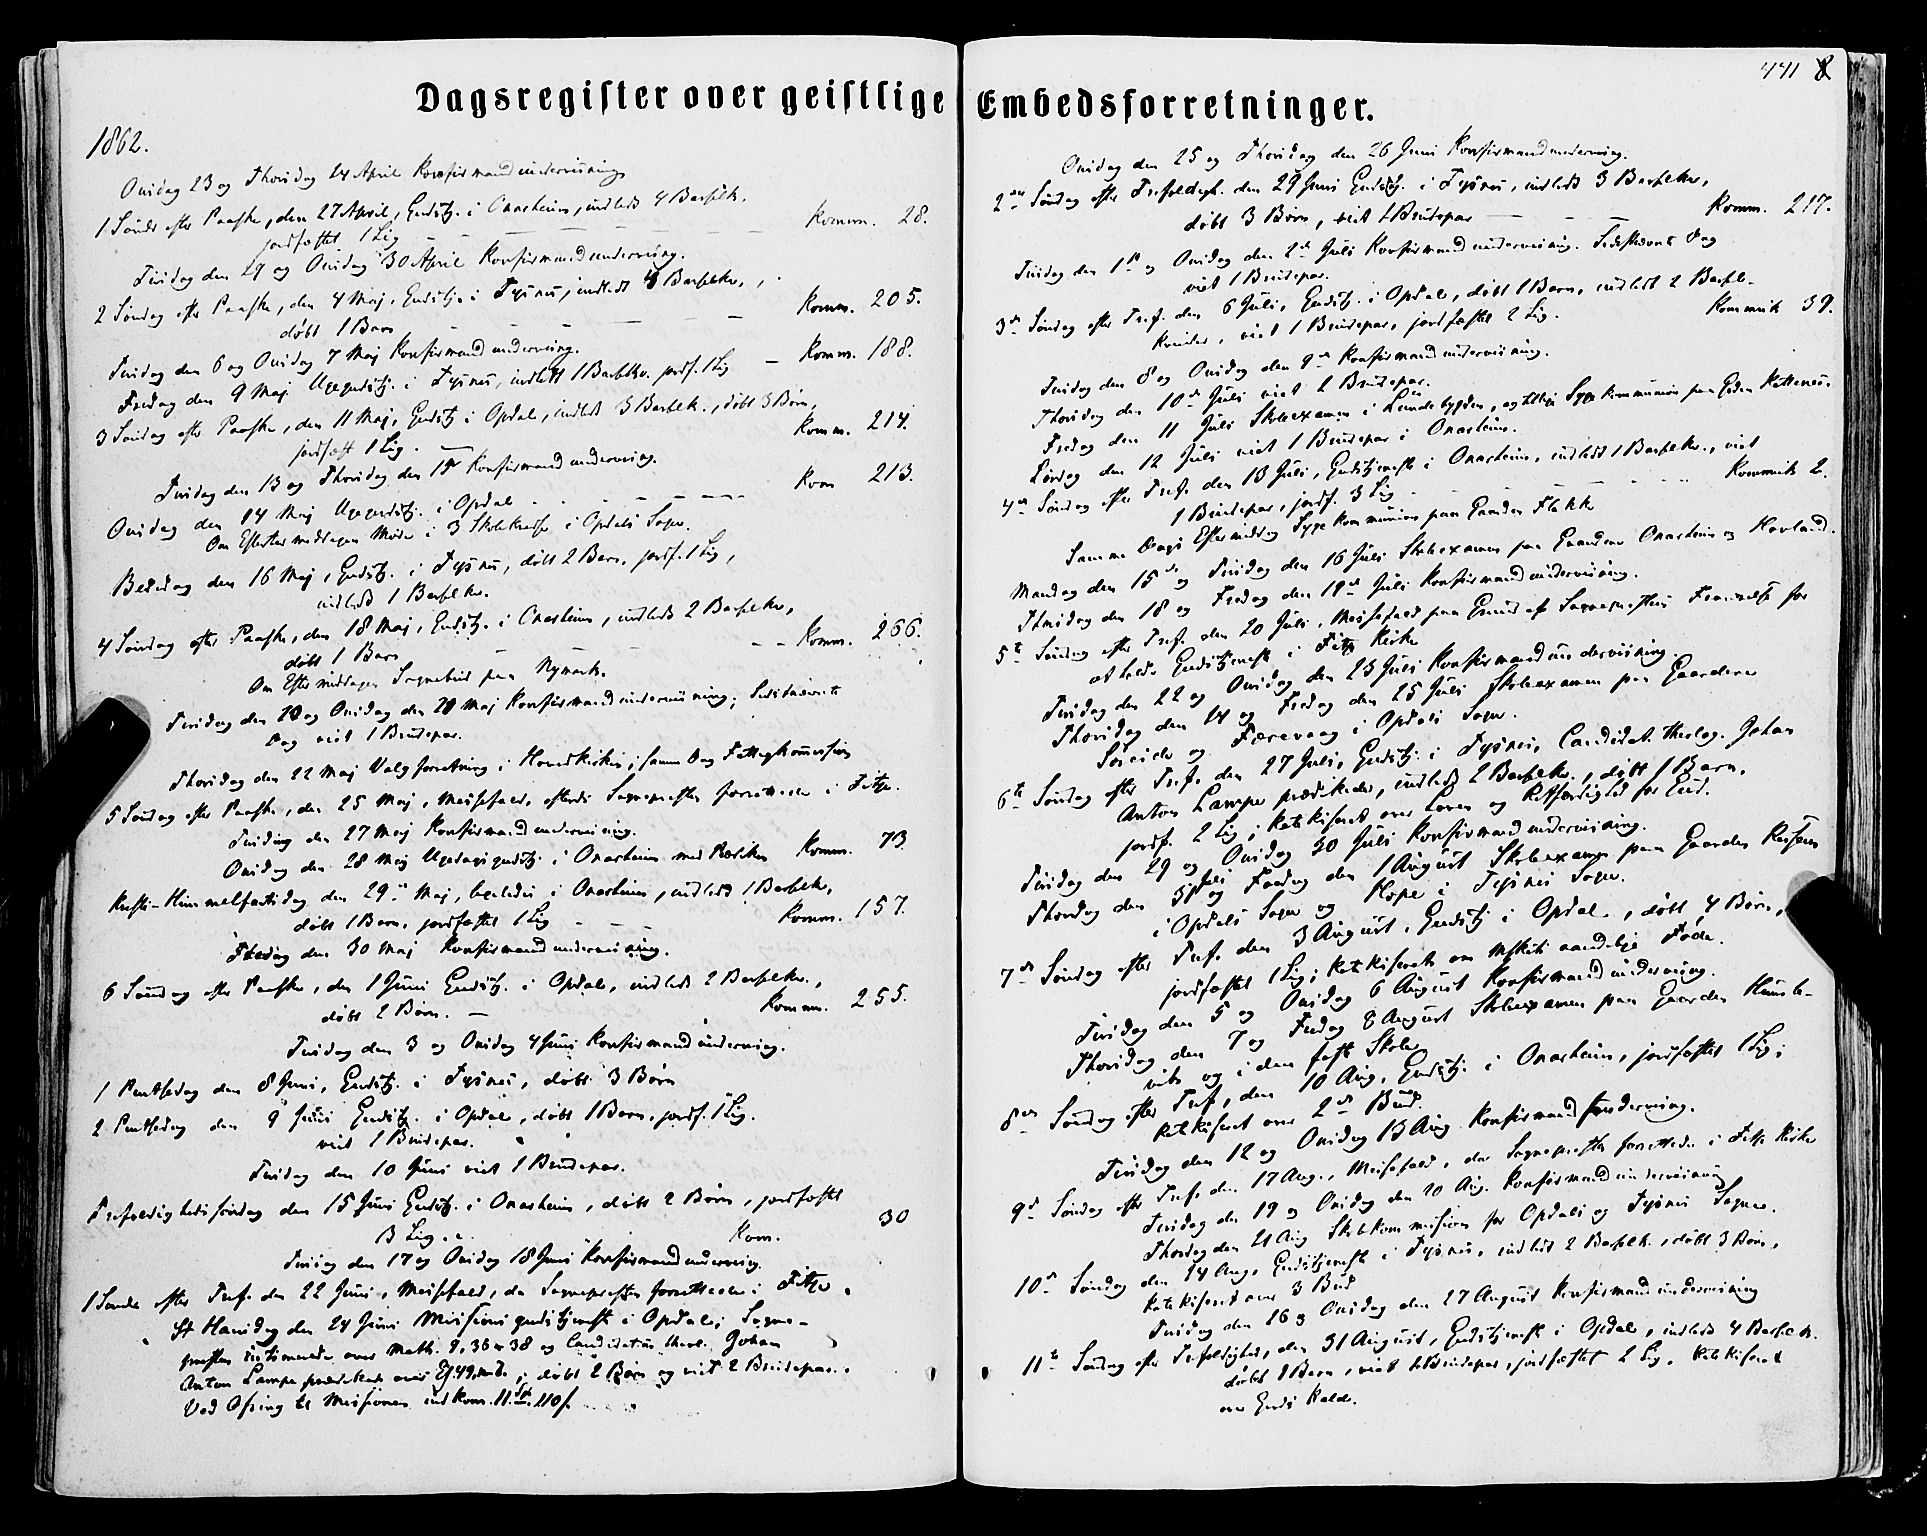 Dagsregister over geistlige Embedsforretninger.
441 8
1862.
Onsdag 23 og Thorsdag 24 April Konfirmandundervisning
1 Sønd. efter Paaske, den 27 April, Gudstj. i Onarheim, indledt 4 Barselk.
jordfæstet 1 Lig Komm. 28.
Tirsdag den 29 og Onsdag 30 April Konfirmandundervisning.
2 Søndag efter Paaske, den 4 Maj, Gudstj. i Tysnes, indledt 4 Barselkv.,
døbt 1 Barn Komm. 205.
Tirsdag den 6 og Onsdag 7 Maj Konfirmandundervisning.
Fredag den 9 Maj Ugegudstj. i Tysnes, indledt 1 Barselkv. jordf. 1 Lig Komm. 188.
3 Søndag efter Paaske, den 11 Maj, Gudstj. i Opdal, indledt 3 Barselk., døbt 3 Børn,
jordfæst 1 Lig. Komm. 214.
Tirsdag den 13 og Thorsdag den 15 Konfirmandundervisning.
Onsdag den 14 Maj Ugegudstj. i Opdal Kom 213.
Om Eftermiddagen Møde i 3 Skolekredse i Opdals Sogn.
Bededag den 16 Maj, Gudstj. i Tysnes, døbt 2 Børn, jordf. 1 Lig,
indledt 1 Barselkv.
4 Søndag efter Paaske, den 18 Maj, Gudstj. i Onarheim, indledt 2 Barselkv,
døbt 1 Barn Komm. 266.
Om Eftermiddagen Sognebud paa Nymark.
Tirsdag den 20 og Onsdag den 21 Maj Konfirmandundervisning; Sidstnævnte
Dag viet 1 Brudepar.
Thorsdag den 22 Maj Valgforretning i Hovedkirken; samme Dag Fattigkommission
5 Søndag efter Paaske, den 25 Maj, Messefald, efterdi Sognepresten forrettede i Fitje.
Tirsdag den 27 Maj Konfirmandundervisning.
Onsdag den 28 Maj Ugedagsgudstj. i Onarheim med Præken Komm. 73
Kristi-Himmelfartsdag den 29de Maj, ligeledes i Onarheim, indledt 1 Barselkv,
døbt 1 Barn, jordfæstet 1 Lig Komm. 157.
Fredag den 30 Maj Konfirmandundervisning.
6 Søndag efter Paaske, den 1 Juni Gudstj. i Opdal, indledt 2 Barselkv.,
døbt 2 Børn. Komm. 255.
Tirsdag den 3 og Onsdag 4 Juni Konfirmandundervisning.
1 Pintsedag den 8 Juni, Gudstj. i Tysnes, døbt 3 Børn
2 Pintsedag den 9 Juni Gudstj. i Opdal, døbt 1 Barn, jordf. 1 Lig.
viet 1 Brudepar.
Tirsdag den 10 Juni viet 1 Brudepar.
Trefoldighedssøndag den 15 Juni Gudstj. i Onarheim, døbt 2 Børn, jordfæstet
3 Lig. Kom. 30
Tirsdag den 17 og Onsdag 18 Juni Konfirmandundervisning
1 Sønda efter Tref. den 22 Juni, Messefald, da Sognepresten forrettede i Fitje.
St Hansdag den 24 Juni Missionsgudstjeneste i Opdal; Sogne-
presten intimerede over Math. 9, 36-38 og Candidatus theol. Johan
Anton Lampe prædikede over; døbt 2 Børn og viet 2 Brudepar.
Ved Ofring til Missionen indkom. 11 Spd. 110 s.
Onsdag den 25 og Thorsdag den 26 Juni Konfirmandundervisning.
2den Søndag efter Trefoldigh. den 29 Juni Gudstj. i Tysnes, indledt 3 Barselkv.,
døbt 3 Børn, viet 1 Brudepar Komm. 217.
Tirsdag den 1ste og Onsdag den 2den Juli Konfirmandundervisning. Sidstnævnte Dag
viet 1 Brudepar.
3die Søndag efter Tref. den 6 Juli, Gudstj. i Opdal, døbt 1 Barn, indledt 2 Barsel-
kvinder, viet 1 Brudepar, jordfæstet 2 Lig. Kommunik 39.
Tirsdag den 8 og Onsdag den 9de Konfirmandundervisning.
Thorsdag den 10de Juli viet 2 Brudepar.
Fredag den 11 Juli Skoleexamen i Lundebygden, og tillige Sygekommunion paa
Lørdag den 12 Juli viet 1 Brudepar i Onarheim.
4de Søndag efter Tref. den 13 Juli, Gudstjeneste i Onarheim, indledt 1 Barselkv., viet
1 Brudepar, jordf. 3 Lig Kommunik 2.
Samme Dags Eftermiddag Sygekommunion paa Gaarden Flakke
Mandag den 15de og Tirsdag den 16 Juli Skoleexamen paa Gaardene Onarheim og Hovland.
Thorsdag den 18 og Fredag den 19de Juli Konfirmandundervisning.
5te Søndag efter Tref. den 20 Juli, Messefald paa Grund af Sogneprestens Fraværelse for
at holde Gudstjeneste i Fitje Kirke
Tirsdag den 22 og Onsdag den 23 Juli Konfirmandundervisning.
Thorsdag den 24 og Fredag den 25 Juli Skoleexamen paa Gaardene
og Færevaag i Opdals Sogn.
6te Søndag efter Tref. den 27 Juli, Gudstj. i Tysnes, Candidat. theolog. Johan
Anton Lampe prædikede, indledt 2 Barselkv., døbt 1 Barn,
jordf. 2 Lig; katekiseret over Loven og Retfærdighed for Gud.
Tirsdag den 29 og Onsdag 30 Juli Konfirmandundervisning.
Thorsdag den 31 Juli og Fredag den 1 August Skoleexamen paa Gaarden
i Opdals Sogn og Hope i Tysnes Sogn.
7de Søndag efter Tref. den 3 August, Gudstj. i Opdal, døbt 4 Børn,
jordfæstet 1 Lig; katekiseret om Msket aandelige Føde.
Tirsdag den 5 og Onsdag 6 August Konfirmandundervisning.
Thorsdag den 7 og Fredag 8 August Skoleexamen paa Gaarden Humle-
vik og i den faste Skole
8de Søndag efter Tref, den 10 Aug, Gudstj. i Onarheim, jordfæstet 1 Lig;
Katekiseret over 2det Bud.
Tirsdag den 12 og Onsdag 13 Aug Konfirmandundervisning.
9de Søndag efter Tref. den 17 Aug., Messefald, da Sognepresten forrettede i Fitje Kirke
Tirsdag den 19 og Onsdag den 20 Aug. Konfirmandundervisning
Thorsdag den 21 Aug Skolekommission for Opdals og Tysnes Sogne.
10de Søndag den 24 Aug, Gudstjeneste i Tysnes, indledt 2 Barselk., døbt 3 Børn,
Katekiseret over 3 Bud
Tirsdag den 26 og Onsdag den 27 August Konfirmandundervisning
11te Søndag efter Trefoldighed, den 31 August, Gudstjeneste i Opdal, indledt 4 Barselk.
døbt 1 Barn, viet 1 Brudepar, jordfæstet 2 Lig, Katekiseret
over Guds Kald.